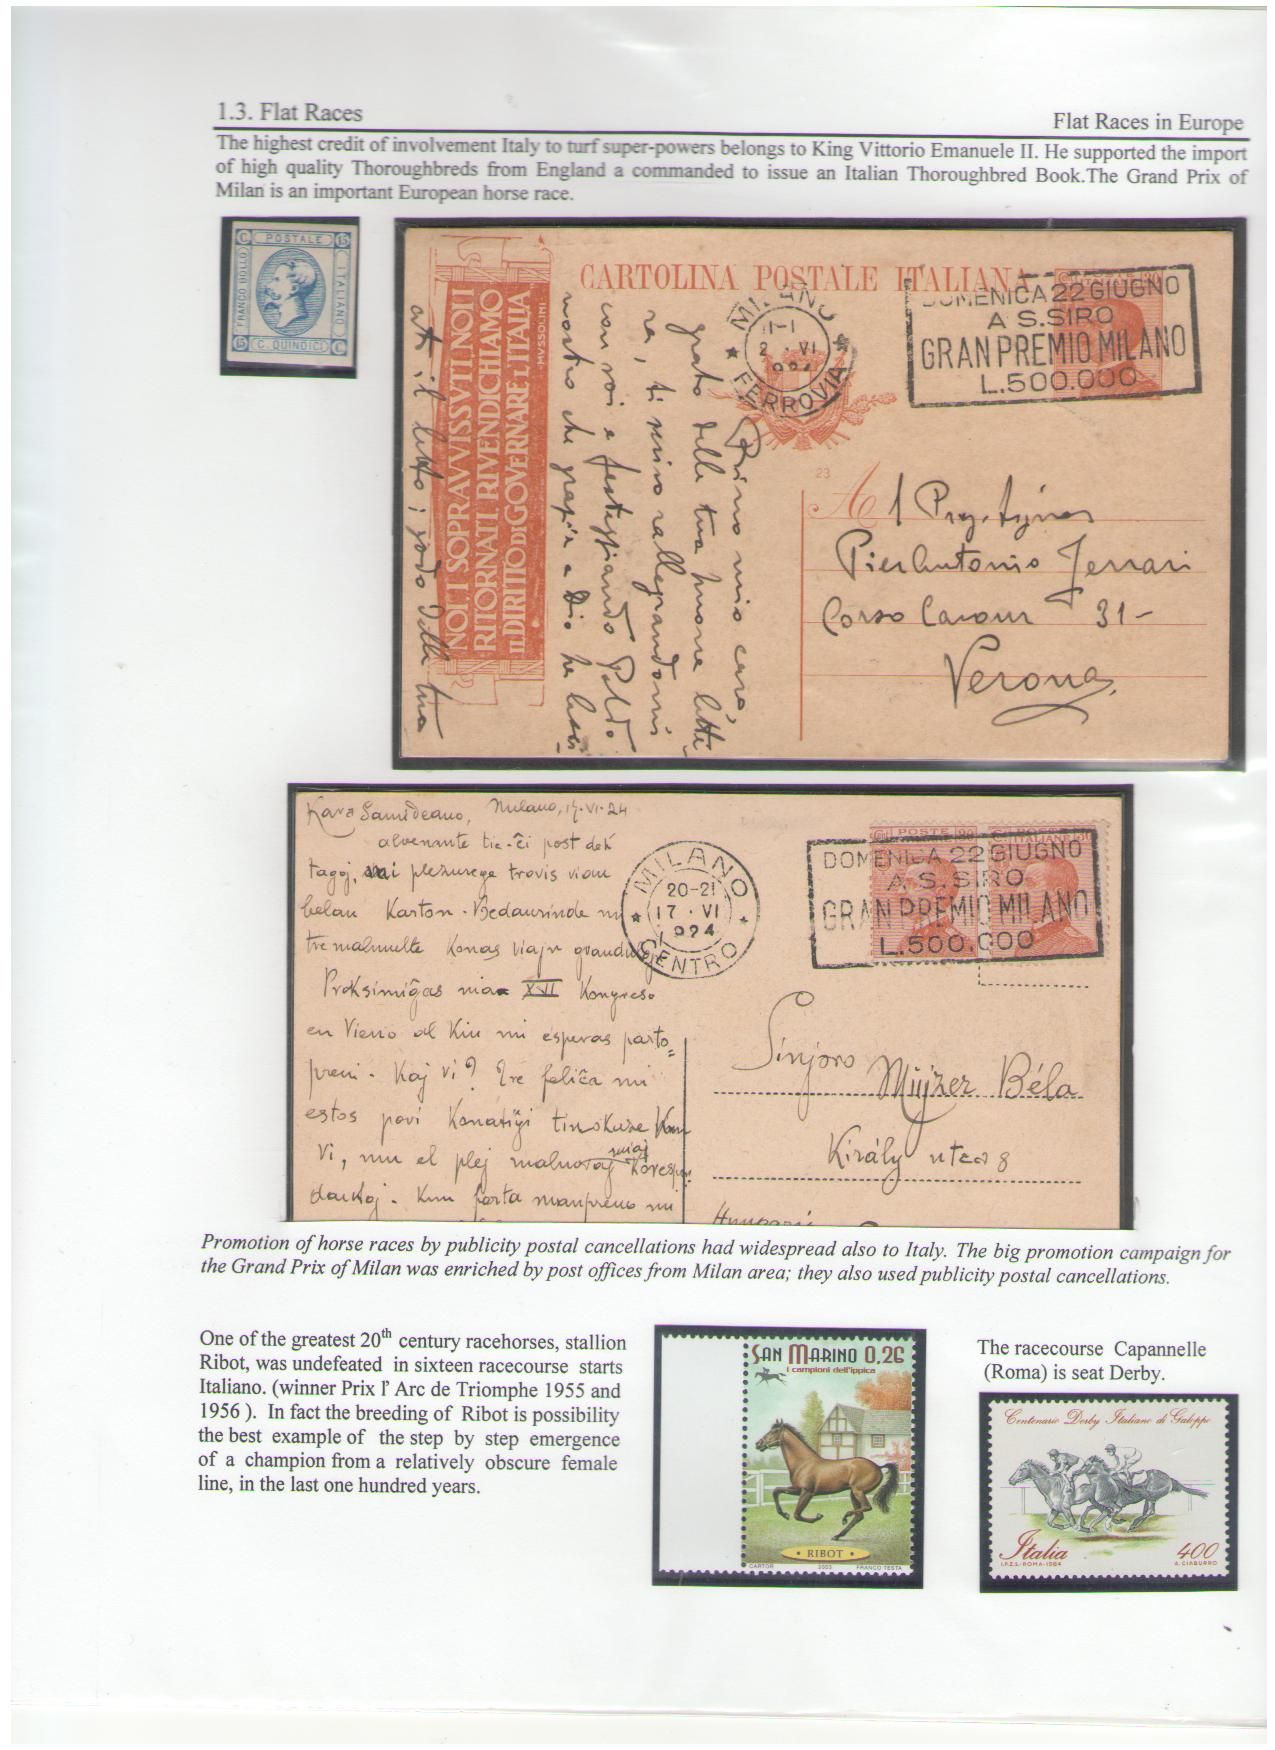 1.3. Flat Races
Flat Races in Europe
The highest credit of involvement Italy to turf super-powers belongs to King Vittorio Emanuele II. He supported the import
of high quality Thoroughbreds from England a commanded to issue an Italian Thoroughbred Book.The Grand Prix of
Milan is an important European horse race.
C POSTALE 15
FRANCO BOLLO
ITALIANO
15 C. QUINDICI C
CARTOLINA POSTALE ITALIANA
NOI I SOPRAVVISSVTI, NOI I
RITORNATI RIVENDICHIAMO
IL DIRITTO DI GOVERNARE L'ITALIA
MVSSOLINI
MILANO
FERROVIA
DOMENICA 22 GIUGNO
A S.SIRO
GRAN PREMIO MILANO
L.500.000
23
Primo mio caro,
grato della tua buona lette
ra, ti scrivo rallegrandomi
con voi e festeggiando
nostro che grazie a Dio ha
il letto; godo della tua
Al
Pier Antonio Ferrari
Corso Cavour 31-
Verona
Kara Samideano, Milano, 17.VI.24
post
tagoj, mi plezurege trovis vian
belan Karton. Bedaurinde mi
tre malmulte Konas
Proksimiĝas nia XVI Kongreso
en Vieno al Kiu mi esperas parto=
preni. Kaj vi? Tre feliĉa mi
estos povi Konatiĝi Kun
vi, unu el plej malnovaj miaj Korespon
dantoj. Kun forta manpremo mi
MILANO
20-21
17 · VI
1924
CENTRO
DOMENICA 22 GIUGNO
A S.SIRO
GRAN PREMIO MILANO
L.500.000
Sinjoro
Béla
Király utca 8
Promotion of horse races by publicity postal cancellations had widespread also to Italy. The big promotion campaign for
the Grand Prix of Milan was enriched by post offices from Milan area; they also used publicity postal cancellations.
One of the greatest 20th century racehorses, stallion
Ribot, was undefeated in sixteen racecourse starts
Italiano. (winner Prix l' Arc de Triomphe 1955 and
1956 ). In fact the breeding of Ribot is possibility
the best example of the step by step emergence
of a champion from a relatively obscure female
line, in the last one hundred years.
SAN MARINO 0,26
i campioni dell'ippica
RIBOT
CARTOR 2003 FRANCO TESTA
The racecourse Capannelle
(Roma) is seat Derby.
Centenario Derby Italiano di Galoppo
Italia 400
I.P.Z.S.-ROMA-1984 A. CIABURRO